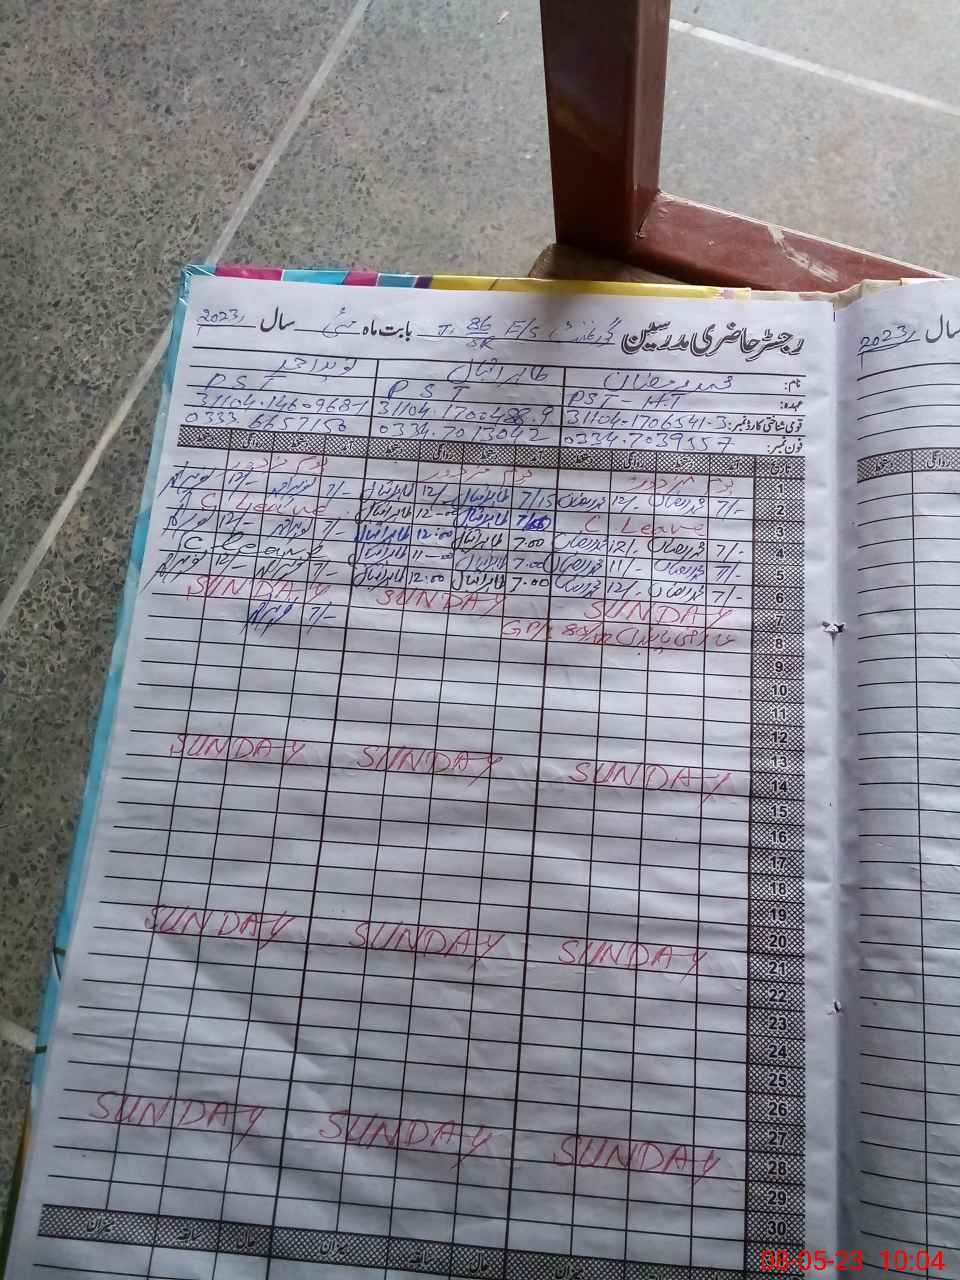 رجسٹر حاضری مدرسین گورنمنٹ E/S 86 بابت ماہ مئی سال 2023ء
2023ء سال
نام: محمد رمضان طاہر اقبال نوید احمد
عہدہ: PST - HT P S T P S T
قومی شناختی کارڈ نمبر: 31104-1706541-3 31104.1700488.9 31104.1460968-1
فون نمبر: 0334.7039557 0334.7013042 0333.6657150
تاریخ آمد دستخط روانگی دستخط آمد دستخط روانگی دستخط آمد دستخط روانگی دستخط
روانگی دستخط
1 یوم مزدور یوم مزدور یوم مزدور
2 7/- محمد رمضان 12/- محمد رمضان 7/15 طاہر اقبال 12/- طاہر اقبال 7/- 12/-
3 C Leave طاہر اقبال 12-00 طاہر اقبال C Leave
4 7/- محمد رمضان 12/- محمد رمضان 7.00 طاہر اقبال 12:00 طاہر اقبال 7/- 12/-
5 7/- محمد رمضان 11/- محمد رمضان 7.00 طاہر اقبال 11-00 طاہر اقبال C Leave
6 7/- محمد رمضان 12/- محمد رمضان 7.00 طاہر اقبال 12:00 طاہر اقبال 7/- 12/-
7 SUNDAY SUNDAY SUNDAY
8 7/-
9
10
11
12
13
14 SUNDAY SUNDAY SUNDAY
15
16
17
18
19
20
21 SUNDAY SUNDAY SUNDAY
22
23
24
25
26
27
28 SUNDAY SUNDAY SUNDAY
29
30
حال سابقہ میزان حال سابقہ میزان
08-05-23 10:04